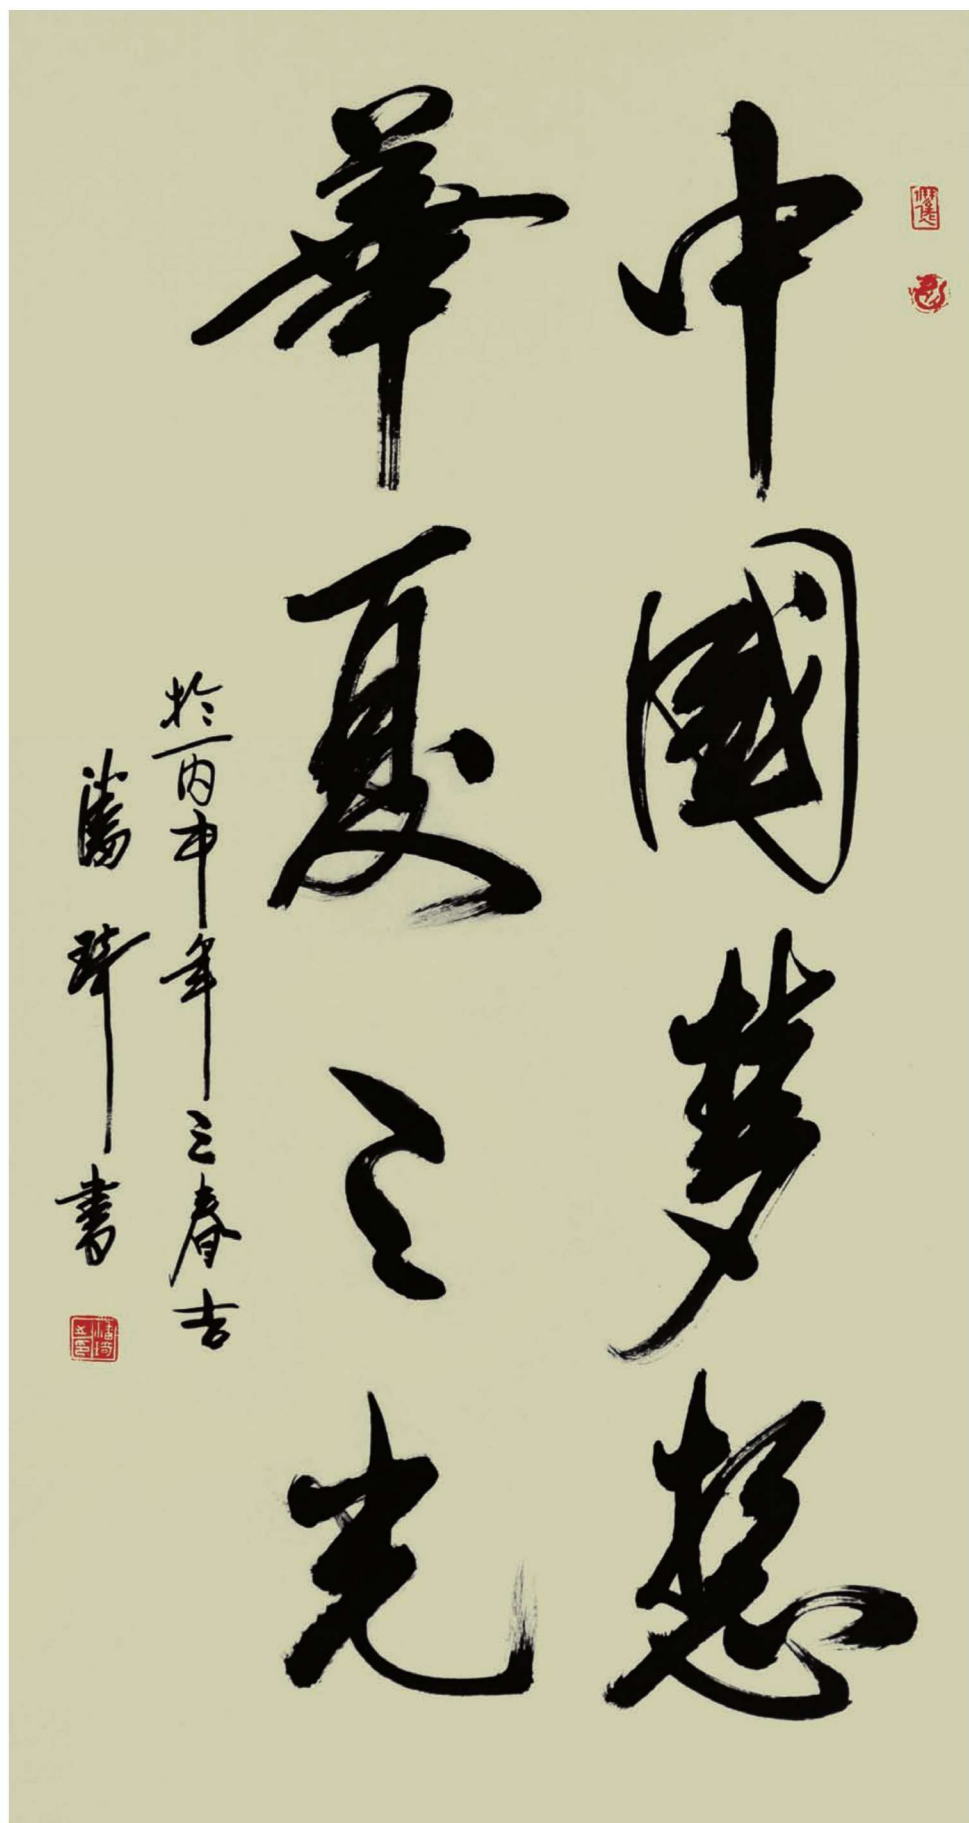 中國梦想
華夏之光
於丙申年之春吉
潘琦書